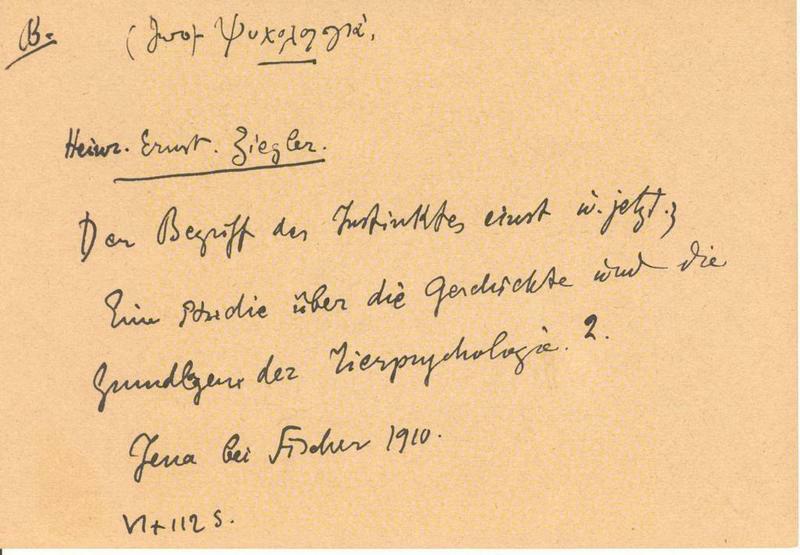 B.
Ψυχολογιά,
Heinr. Ernst. Ziegler.
Der Begriff des Instinktes einst u. jetzt.
Eine Studie über die Geschichte und die
Grundlgen der Tierpsychologie. 2.
Jena bei Fischer 1910.
VI+112 S.